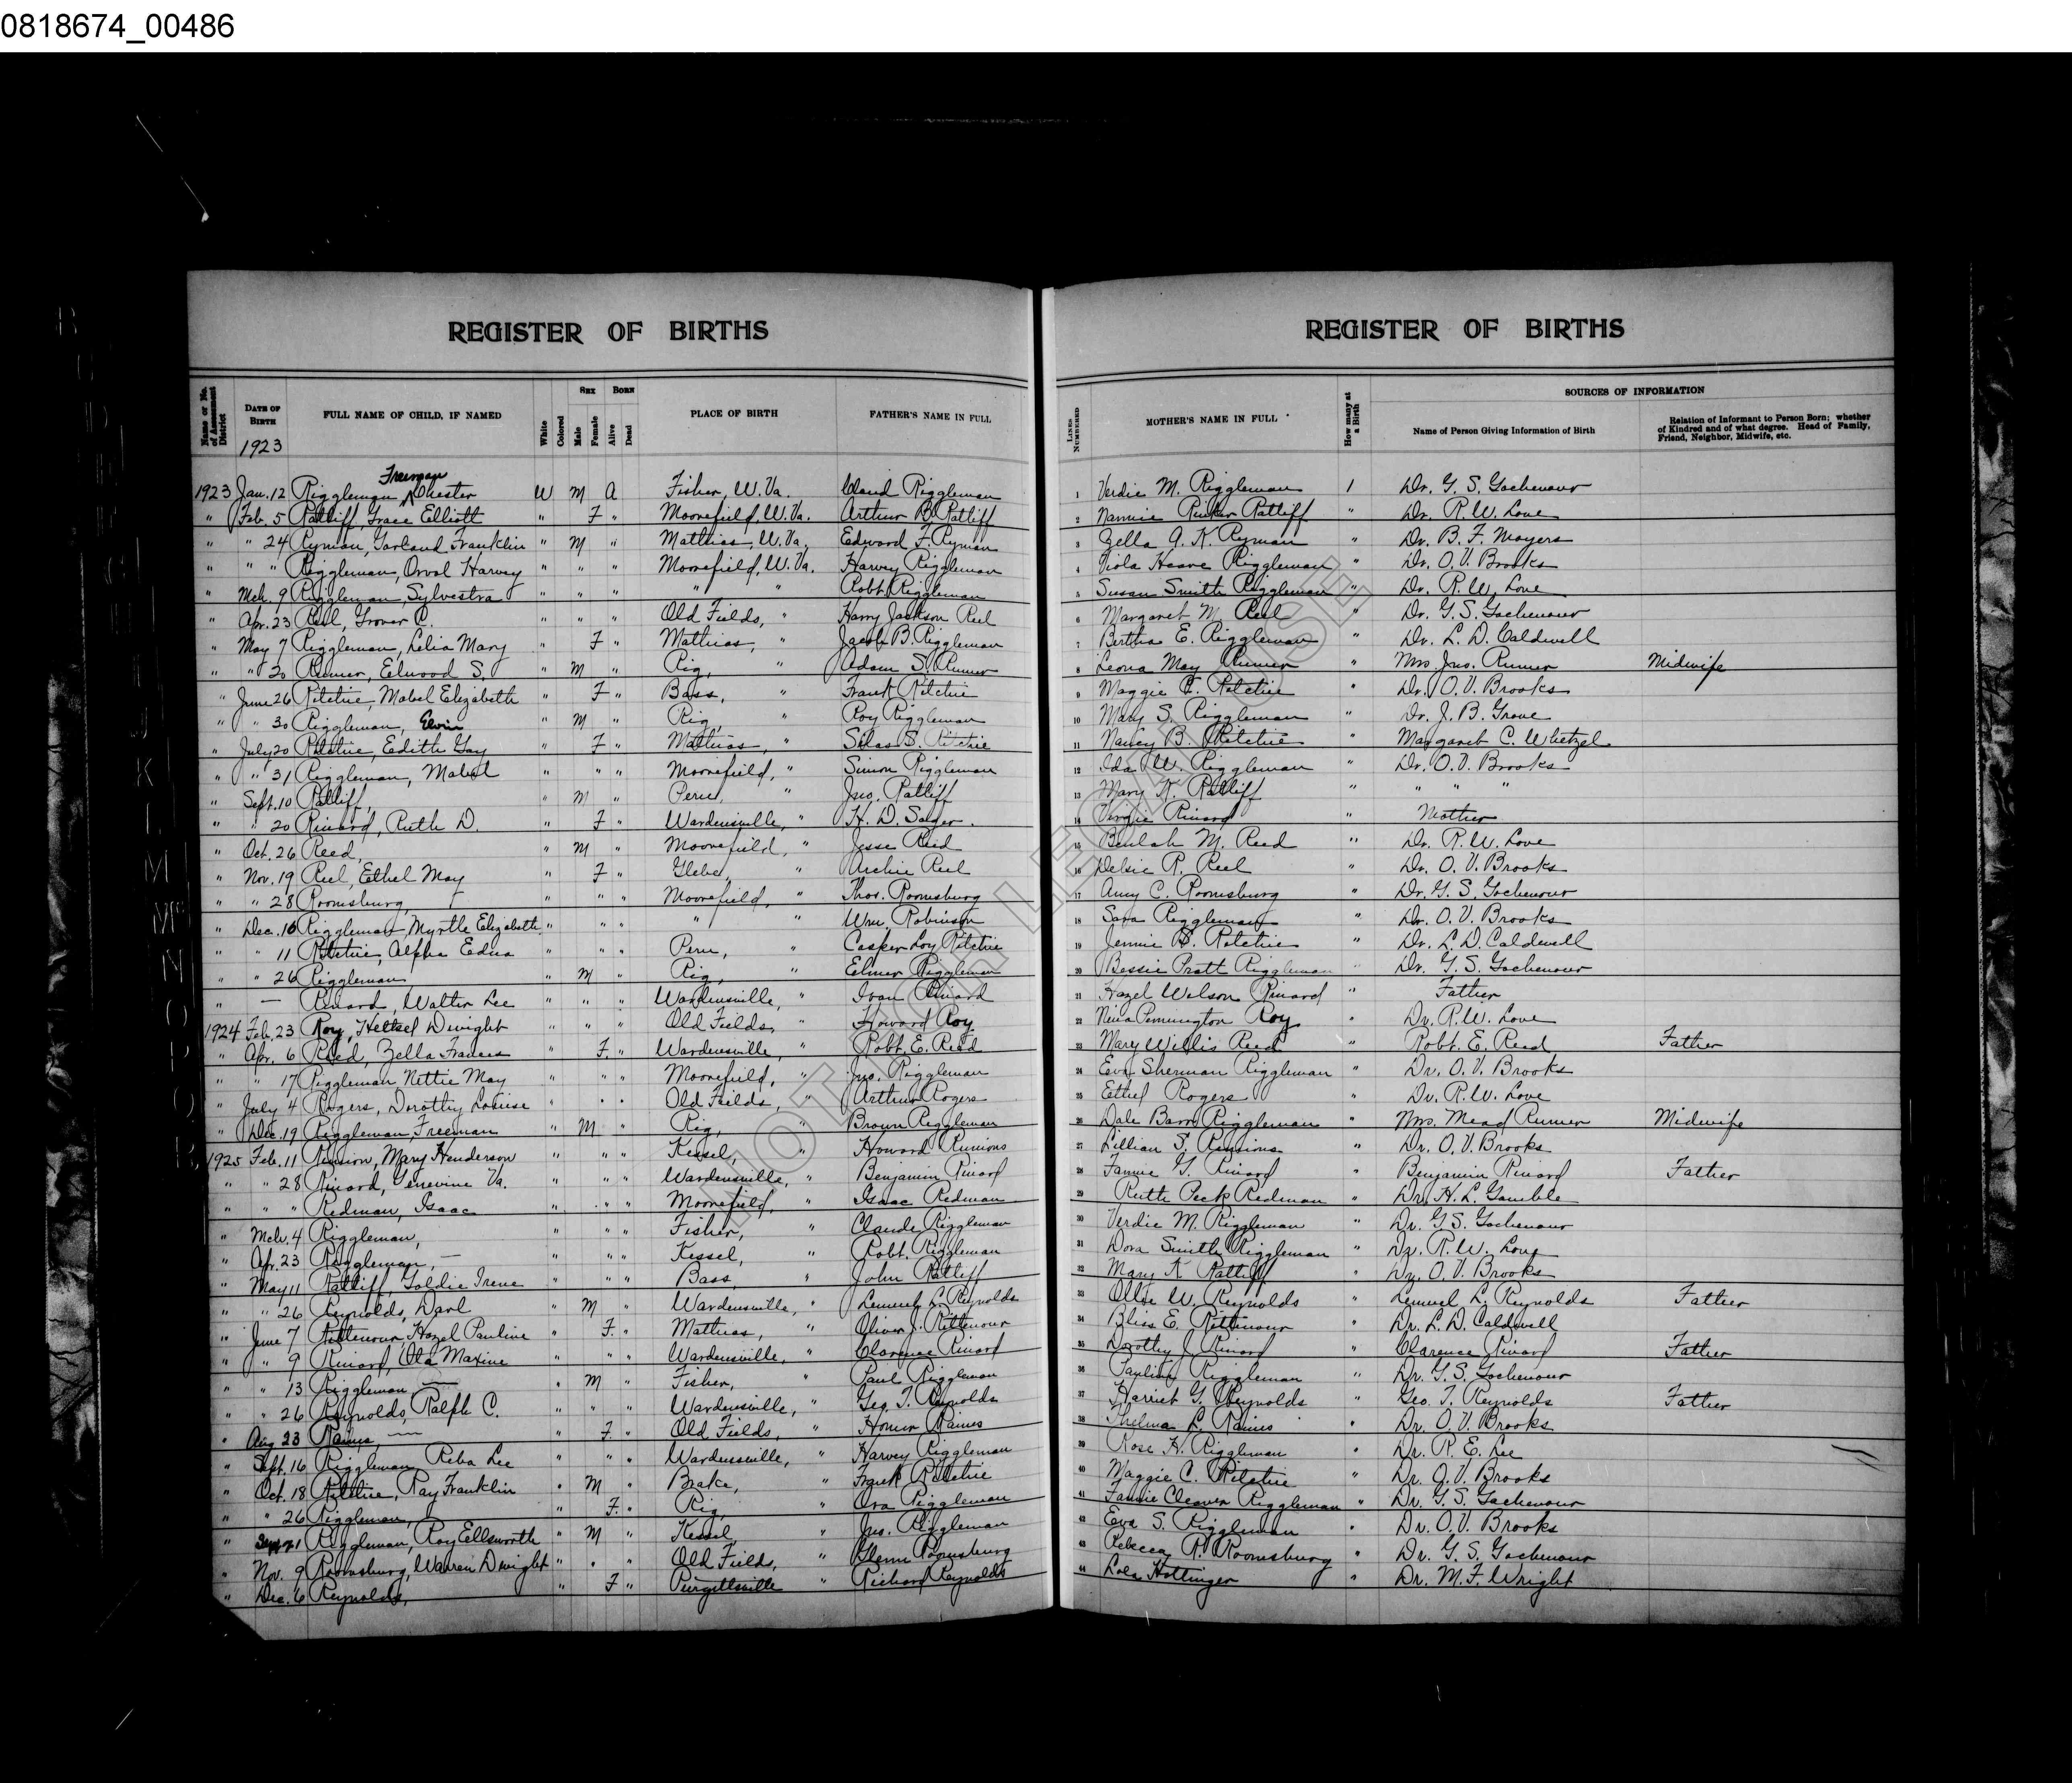 0818674_00486
REGISTER OF BIRTHS
Name or No. of Assessment District
DATE OF BIRTH 1923
FULL NAME OF CHILD, IF NAMED
White
Colored
SEX
Male
Female
BORN
Alive
Dead
PLACE OF BIRTH
FATHER'S NAME IN FULL
Freeman
1923 Jan. 12 Riggleman, ^ Chester W M A Fisher, W. Va. Claud Riggleman
" Feb. 5 Ratliff, Grace Elliott " F " Moorefield, W. Va. Arthur B. Ratliff
" " 24 Ryman, Garland Franklin " M " Mathias, W. Va. Edward F. Ryman
" " " Riggleman, Orval Harvey " " " Moorefield, W. Va. Harvey Riggleman
" Mch. 9 Riggleman, Sylvestra " " " " " Robt Riggleman
" Apr. 23 Reel, Grover C. " " " Old Fields, " Harry Jackson Reel
" May 7 Riggleman, Lelia Mary " F " Mathias, " Jacob B. Riggleman
" " 20 Rumer, Elwood S. " M " Rig, " Adam S. Rumer
" June 26 Ritchie, Mabel Elizabeth " F " Bass, " Frank Ritchie
" " 30 Riggleman, Elvin " M " Rig, " Roy Riggleman
" July 20 Ritchie, Edith Gay " F " Mathias, " Silas S. Ritchie
" " 31 Riggleman, Mabel " " " Moorefield, " Simon Riggleman
" Sept. 10 Ratliff, " M " Peru, " Jno. Ratliff
" " 20 Rinard, Ruth D. " F " Wardensville, " H. D. Sager.
" Oct. 26 Reed, " M " Moorefield, " Jesse Reed
" Nov. 19 Reel, Ethel May " F " Glebe, " Archie Reel
" " 28 Roomsburg, " " " Moorefield, " Thos. Roomsburg
" Dec. 10 Riggleman, Myrtle Elizabeth " " " " " Wm Robinson
" " 11 Ritchie, Alpha Edna " " " Peru, " Casper Loy Ritchie
" " 26 Riggleman " M " Rig, " Elmer Riggleman
" — Rinard, Walter Lee " " " Wardensville, " Ivan Rinard
1924 Feb. 23 Roy, Heltzel Dwight " " " Old Fields, " Howard Roy
" Apr. 6 Reed, Zella Frances " F. " Wardensville, " Robt. E. Reed
" " 17 Riggleman Nettie May " " " Moorefield, " Jno. Riggleman
" July 4 Rogers, Dorothy Louise " " " Old Fields, " Arthur Rogers
" Dec. 19 Riggleman, Freeman " M " Rig, " Brown Riggleman
1925 Feb. 11 Runion, Mary Henderson " " " Kessel, " Howard Runions
" " 28 Rinard, Genevine Va. " " " Wardensville, " Benjamin Rinard
" " " Redman, Isaac " " " Moorefield, " Isaac Redman
" Mch. 4 Riggleman, " " " Fisher, " Claude Riggleman
" Apr. 23 Riggleman, — " " " Kessel, " Robt. Riggleman
" May 11 Ratliff, Goldie Irene " " " Bass, " John Ratliff
" " 26 Reynolds, Darl " M " Wardensville, " Lemuel L. Reynolds
" June 7 Rittenour, Hazel Pauline " F. " Mathias, " Oliver J. Rittenour
" " 9 Rinard, Ola Maxine " " " Wardensville, " Clarence Rinard
" " 13 Riggleman — " M " Fisher, " Paul Riggleman
" " 26 Reynolds, Ralph C. " " " Wardensville, " Geo. T. Reynolds
" Aug 23 Raines, — " F. " Old Fields, " Homer Raines
" Sept. 16 Riggleman, Reba Lee " " " Wardensville, " Harvey Riggleman
" Oct. 18 Ritchie, Ray Franklin " M " Brake, " Frank Ritchie
" " 26 Riggleman, " F. " Rig, " Ora Riggleman
" 21 Riggleman, Roy Ellsworth " M " Kessel " Jno. Riggleman
" Nov. 9 Roomsburg, Warren Dwight " " " Old Fields, " Glenn Roomsburg
" Dec. 6 Reynolds, " F " Purgittsville " Richard Reynolds
REGISTER OF BIRTHS
LINES NUMBERED
MOTHER'S NAME IN FULL
How many at a Birth
SOURCES OF INFORMATION
Name of Person Giving Information of Birth
Relation of Informant to Person Born; whether of Kindred and of what degree. Head of Family, Friend, Neighbor, Midwife, etc.
1 Verdie M. Riggleman 1 Dr. G. S. Gochenour
2 Nannie Rinker Ratliff " Dr. R. W. Love
3 Zella A. K. Ryman " Dr. B. F. Moyers
4 Viola Heave Riggleman " Dr. O. V. Brooks
5 Susan Smith Riggleman " Dr. R. W. Love
6 Margaret M. Reel " Dr. G. S. Gochenour
7 Bertha E. Riggleman " Dr. L. D. Caldwell
8 Leona May Rumer " Mrs. Jno. Rumer Midwife
9 Maggie C. Ritchie " Dr. O. V. Brooks
10 Mary S. Riggleman " Dr. J. B. Grove
11 Nancy B. Ritchie " Margaret C. Whetzel
12 Ida W. Riggleman " Dr. O. V. Brooks
13 Mary K. Ratliff " " " "
14 Virgie Rinard " Mother
15 Beulah M. Reed " Dr. R. W. Love
16 Delsie R. Reel " Dr. O. V. Brooks
17 Amy C. Roomsburg " Dr. G. S. Gochenour
18 Sara Riggleman " Dr. O. V. Brooks
19 Jennie B. Ritchie " Dr. L. D. Caldwell
20 Bessie Pratt Riggleman " Dr. G. S. Gochenour
21 Hazel Wilson Rinard " Father
22 Nina Pennington Roy " Dr. R. W. Love
23 Mary Willis Reed " Robt. E. Reed Father
24 Eva Sherman Riggleman " Dr. O. V. Brooks
25 Ethel Rogers " Dr. R. W. Love
26 Dale Barr Riggleman " Mrs. Mead Rumer Midwife
27 Lillian S. Runions " Dr. O. V. Brooks
28 Fannie G. Rinard " Benjamin Rinard Father
29 Ruth Peck Redman " Dr. H. L. Gamble
30 Verdie M. Riggleman " Dr. G. S. Gochenour
31 Dora Smith Riggleman " Dr. R. W. Love
32 Mary K Ratliff " Dr. O. V. Brooks
33 Ollie W. Reynolds " Lemuel L. Reynolds Father
34 Bliss E. Rittenour " Dr. L. D. Caldwell
35 Dorothy J. Rinard " Clarence Rinard Father
36 Pauline Riggleman " Dr. G. S. Gochenour
37 Harriet G. Reynolds " Geo. T. Reynolds Father
38 Thelma L. Raines " Dr. O. V. Brooks
39 Rose H. Riggleman " Dr. R. E. Lee
40 Maggie C. Ritchie " Dr. O. V. Brooks
41 Fannie Cleaver Riggleman " Dr. G. S. Gochenour
42 Eva S. Riggleman " Dr. O. V. Brooks
43 Rebecca R. Roomsburg " Dr. G. S. Gochenour
44 Lola Hottinger " Dr. M. F. Wright
NOT FOR LEGAL USE